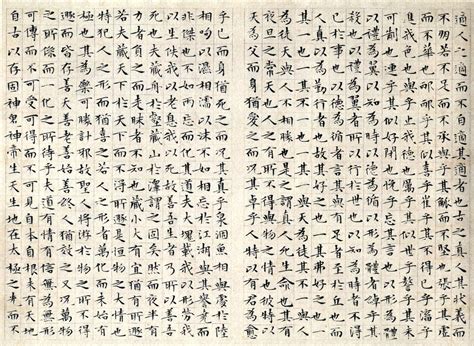 適人之適而不自適其適者也古之真人其狀義而
不朋若不足而不承與乎其觚而不堅也張乎其虛
而不華也邴邴乎其似喜乎崔乎其不得已乎滀乎
進我色也與乎止我德也厲乎其似世乎謷乎其未
可制也連乎其似好閉也悗乎忘其言也以形為體
以禮為翼以知為時以德為循以形為體者綽乎其
殺也以禮為翼者所以行於世也以知為時者不得
已於事也以德為循者言其與有足者至於丘也而
人真以為勤行者也故其好之也一其弗好之也一
其一也一其不一也一其一與天為徒其不一與人
為徒天與人不相勝也是之謂真人死生命也其有
夜旦之常天也人之有所不得與皆物之情也彼特以
天為父而身猶愛之而況其卓乎人特以有君為愈
乎己而身猶死之而況其真乎泉涸魚相與處於陸
相呴以濕相濡以沫不如相忘於江湖與其譽堯而
非桀也不如兩忘而化其道夫大塊載我以形勞我
以生佚我以老息我以死故善吾生者乃所以善吾
死也夫藏舟於壑藏山於澤謂之固矣然而夜半有
力者負之而走昧者不知也藏小大有宜猶有所遯
若夫藏天下於天下而不得所遯是恆物之大情也
特犯人之形而猶喜之若人之形者萬化而未始有
極也其為樂可勝計邪故聖人將遊於物之所不得
遯而皆存善夭善老善始善終人猶效之又況萬物
之所係而一化之所待乎夫道有情有信無為無形
可傳而不可受可得而不可見自本自根未有天地
自古以固存神鬼神帝生天生地在太極之先而不